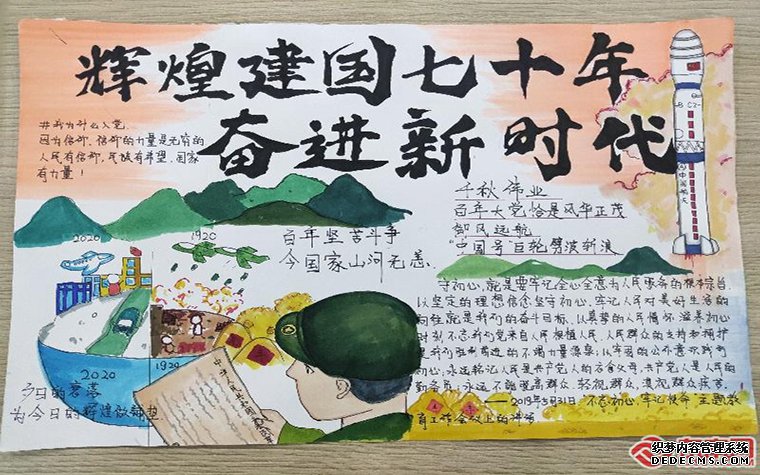 辉煌建国七十年
奋进新时代
#我为什么入党
因为信仰,信仰的力量是无穷的
人民有信仰,民族有希望,国家
有力量!
千秋伟业
百年大党恰是风华正茂
御风远航
"中国号"巨轮劈波斩浪
百年坚苦斗争
今国家山河无恙
2020
1920
2020
1920
今日的衰落
为今日的辉煌做铺垫
中国航天
守初心,就是要牢记全心全意为人民服务的根本宗旨,
以坚定的理想信念坚守初心,牢记人民对美好生活的
向往就是我们的奋斗目标,以真挚的人民情怀滋养初心
时刻不忘我们党来自人民根植人民,人民群众的支持和拥护
是我们胜利前进的不竭力量源泉;以牢固的公仆意识践行
初心,永远铭记人民是共产党人的衣食父母,共产党人是人民的
勤务员,永远不能脱离群众、轻视群众、漠视群众疾苦。
——2019年5月31日"不忘初心、牢记使命"主题教
育工作会议上的讲话
织梦内容管理系统
DEDECMS.COM